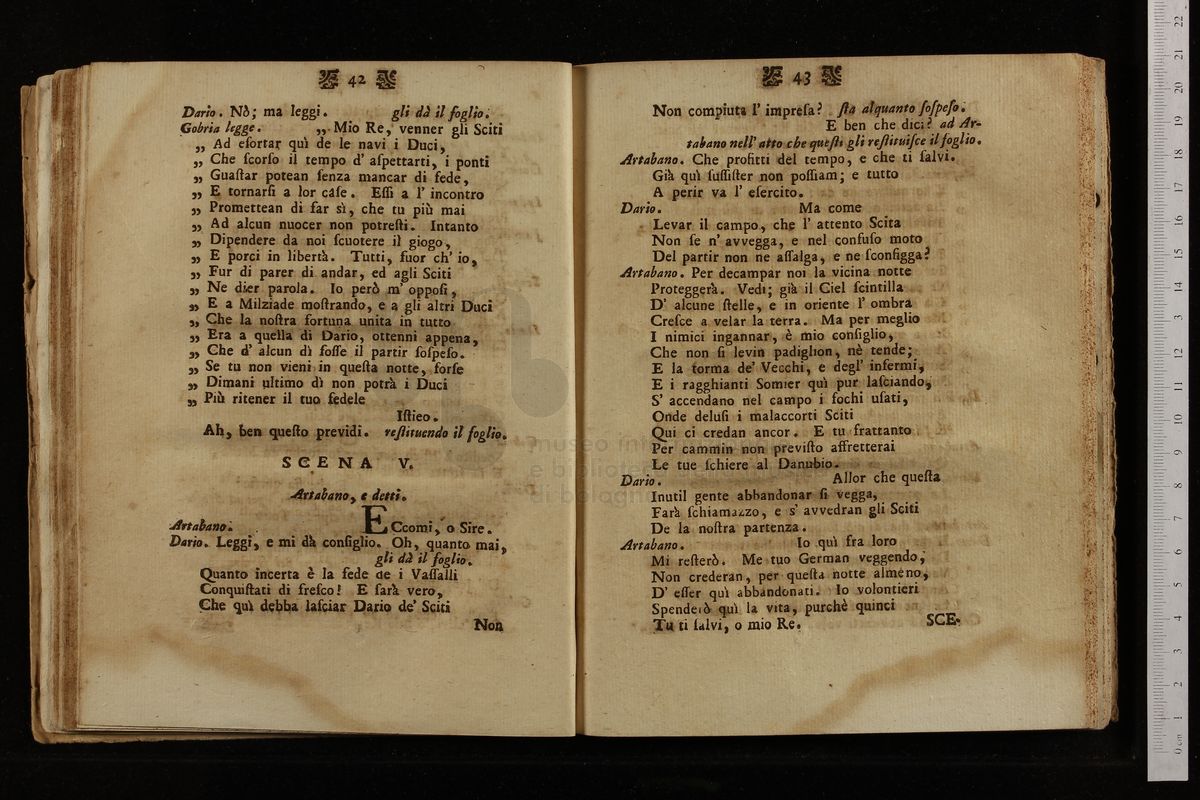 42
Dario. Nò; ma leggi. gli dà il foglio.
Gobria legge. „ Mio Re, venner gli Sciti
„ Ad eſortar quì de le navi i Duci,
„ Che ſcorſo il tempo d' aſpettarti, i ponti
„ Guaſtar potean ſenza mancar di fede,
„ E tornarſi a lor caſe. Eſſi a l' incontro
„ Promettean di far sì, che tu più mai
„ Ad alcun nuocer non potreſti. Intanto
„ Dipendere da noi ſcuotere il giogo,
„ E porci in libertà. Tutti, fuor ch' io,
„ Fur di parer di andar, ed agli Sciti
„ Ne dier parola. Io però m' oppoſi,
„ E a Milziade moſtrando, e a gli altri Duci
„ Che la noſtra fortuna unita in tutto
„ Era a quella di Dario, ottenni appena,
„ Che d' alcun dì foſſe il partir ſoſpeſo.
„ Se tu non vieni in queſta notte, forſe
„ Dimani ultimo dì non potrà i Duci
„ Più ritener il tuo fedele
Iſtieo.
Ah, ben queſto previdi. reſtituendo il foglio.
SCENA V.
Artabano, e detti.
Artabano. ECcomi, o Sire.
Dario. Leggi, e mi dà conſiglio. Oh, quanto mai,
gli dà il foglio.
Quanto incerta è la fede de i Vaſſalli
Conquiſtati di freſco! E ſarà vero,
Che quì debba laſciar Dario de' Sciti
Non
43
Non compiuta l' impreſa? ſta alquanto ſoſpeſo.
E ben che dici? ad Ar-
tabano nell' atto che queſti gli reſtituiſce il foglio.
Artabano. Che profitti del tempo, e che ti ſalvi.
Già quì ſuſſiſter non poſſiam; e tutto
A perir va l' eſercito.
Dario. Ma come
Levar il campo, che l' attento Scita
Non ſe n' avvegga, e nel confuſo moto
Del partir non ne aſſalga, e ne ſconfigga?
Artabano. Per decampar noi la vicina notte
Proteggerà. Vedi; già il Ciel ſcintilla
D' alcune ſtelle, e in oriente l' ombra
Creſce a velar la terra. Ma per meglio
I nimici ingannar, è mio conſiglio,
Che non ſi levin padiglion, nè tende;
E la torma de' Vecchi, e degl' infermi,
E i ragghianti Somier quì pur laſciando,
S' accendano nel campo i fochi uſati,
Onde deluſi i malaccorti Sciti
Qui ci credan ancor. E tu frattanto
Per cammin non previſto affretterai
Le tue ſchiere al Danubio.
Dario. Allor che queſta
Inutil gente abbandonar ſi vegga,
Farà ſchiamazzo, e s' avvedran gli Sciti
De la noſtra partenza.
Artabano. Io quì fra loro
Mi reſterò. Me tuo German veggendo,
Non crederan, per queſta notte almeno,
D' eſſer quì abbandonati. Io volontieri
Spenderò quì la vita, purchè quinci
Tu ti ſalvi, o mio Re.
SCE-